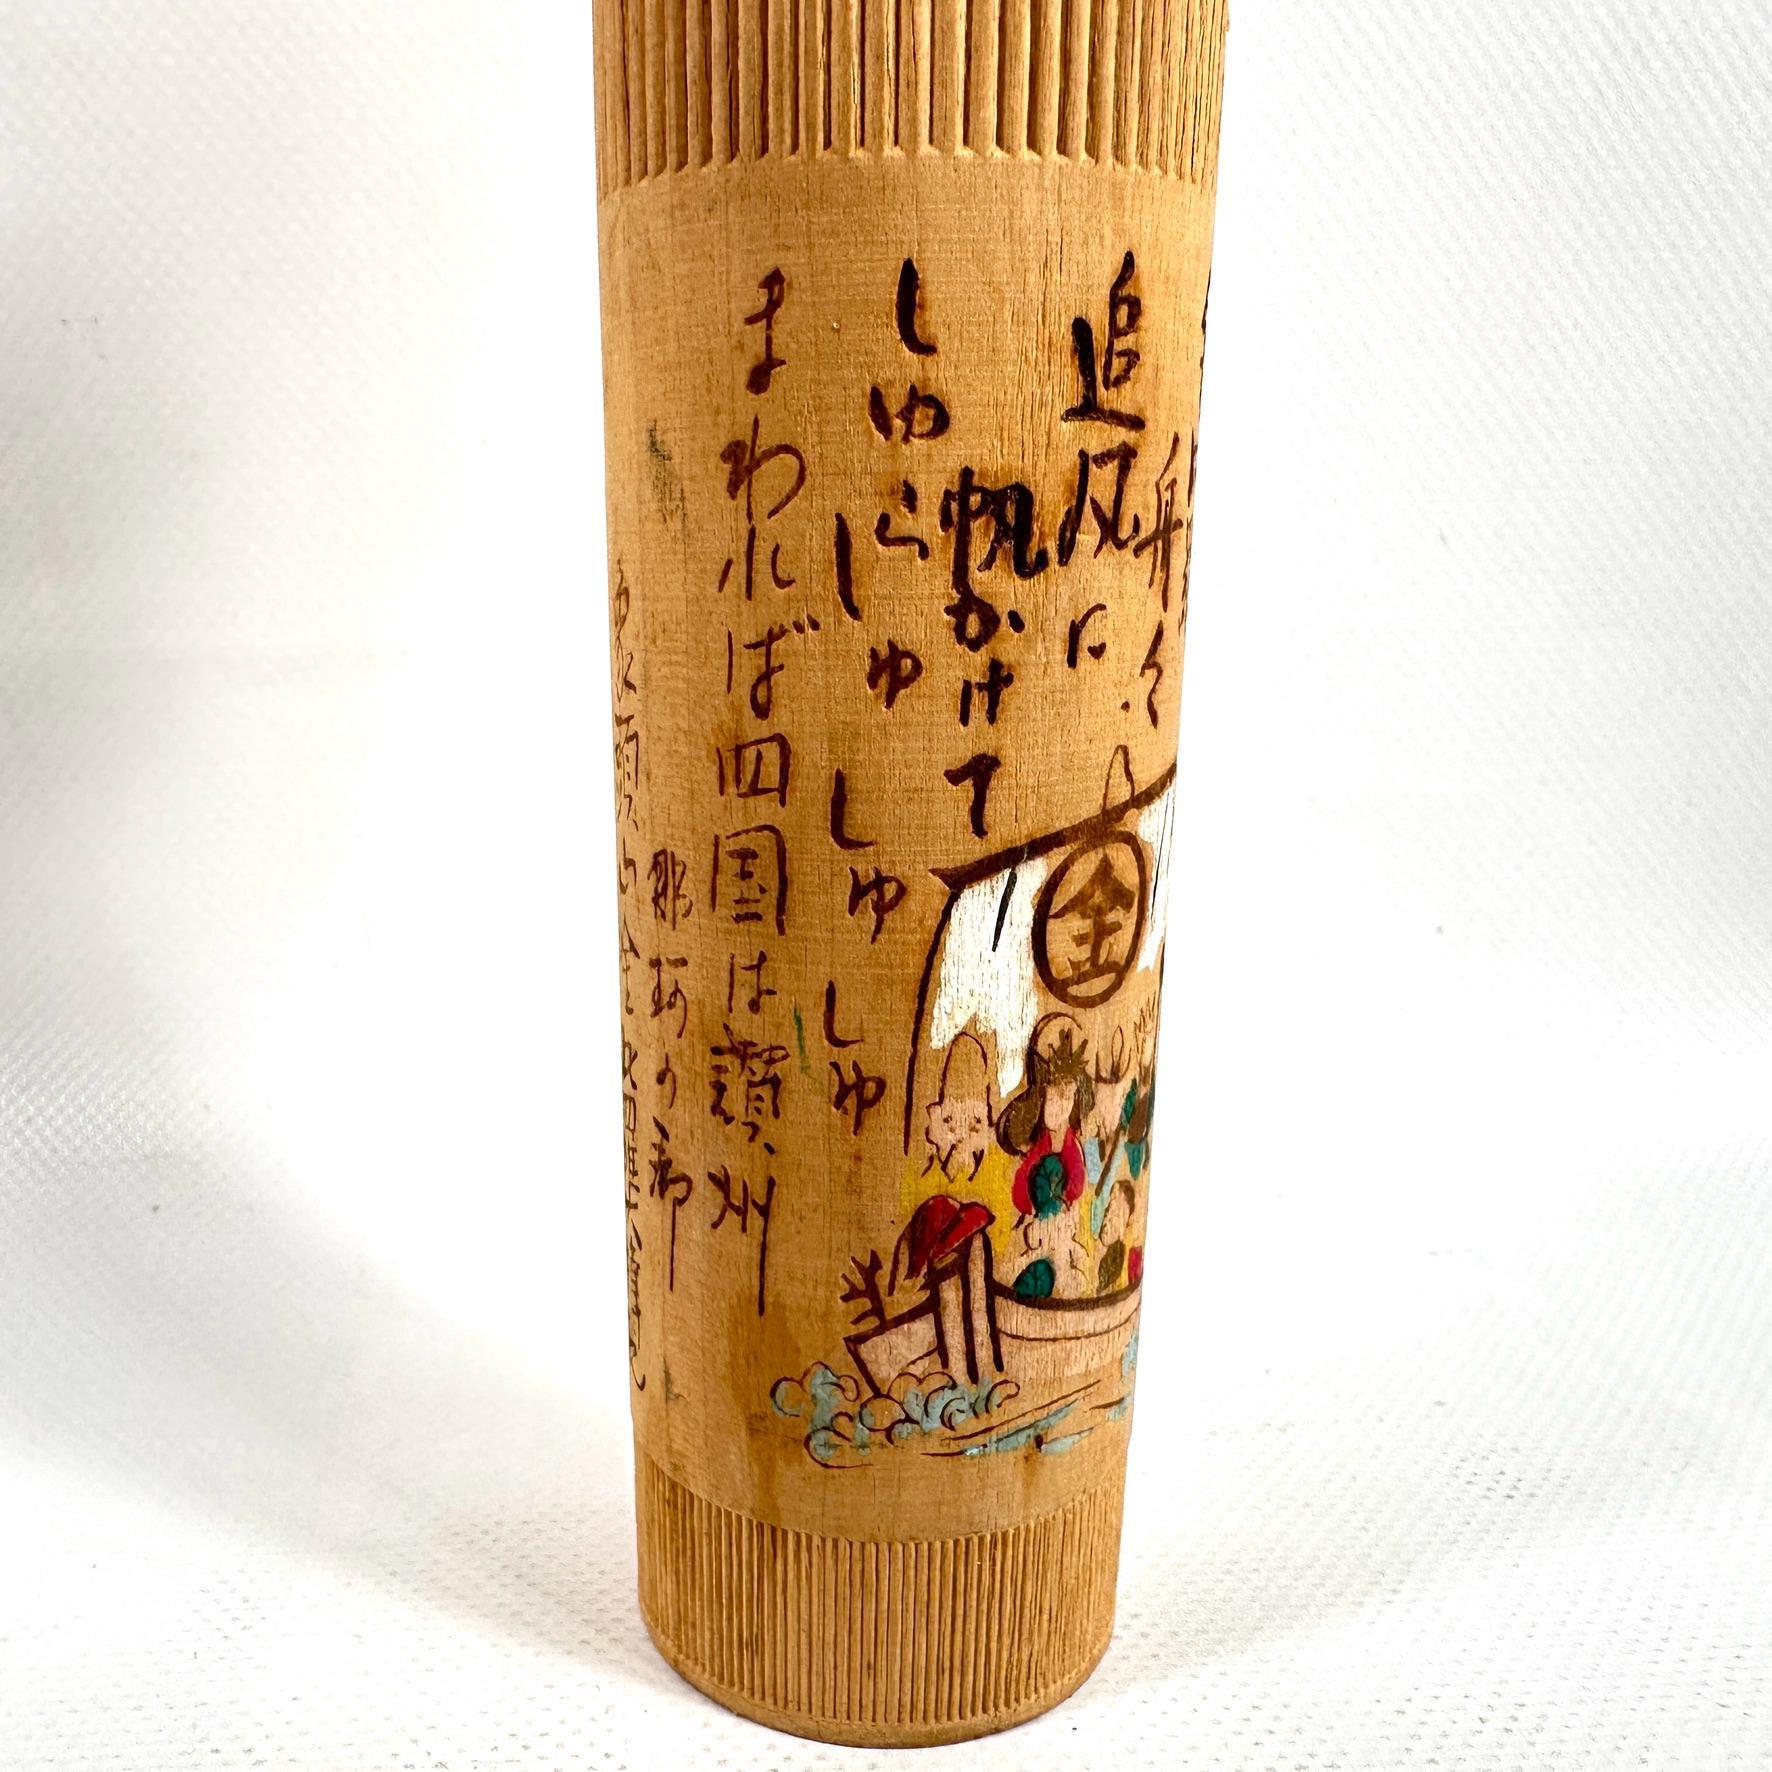 舟々
追風に
帆かけて
しゅらしゅしゅしゅ
まわれば四国は讃州
那珂の郡
象頭山金毘羅
金